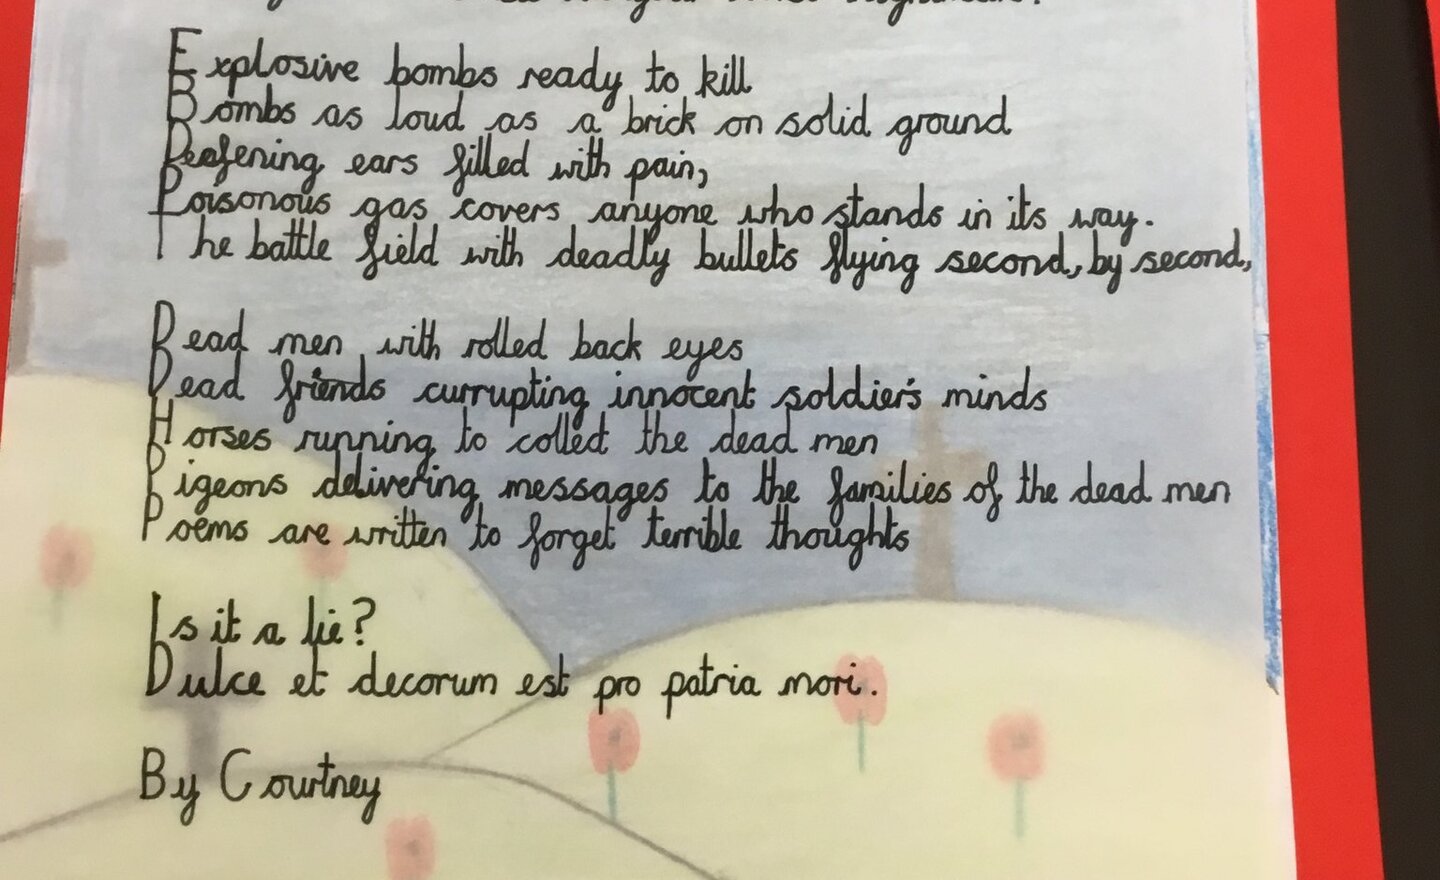 Explosive bombs ready to kill
Bombs as loud as a brick on solid ground
Deafening ears filled with pain,
Poisonous gas covers anyone who stands in its way.
The battle field with deadly bullets flying second, by second,
Dead men with rolled back eyes
Dead friends currupting innocent soldier's minds
Horses running to colled the dead men
Pigeons delivering messages to the families of the dead men
Poems are written to forget terrible thoughts
Is it a lie?
Dulce et decorum est pro patria mori.
By Courtney